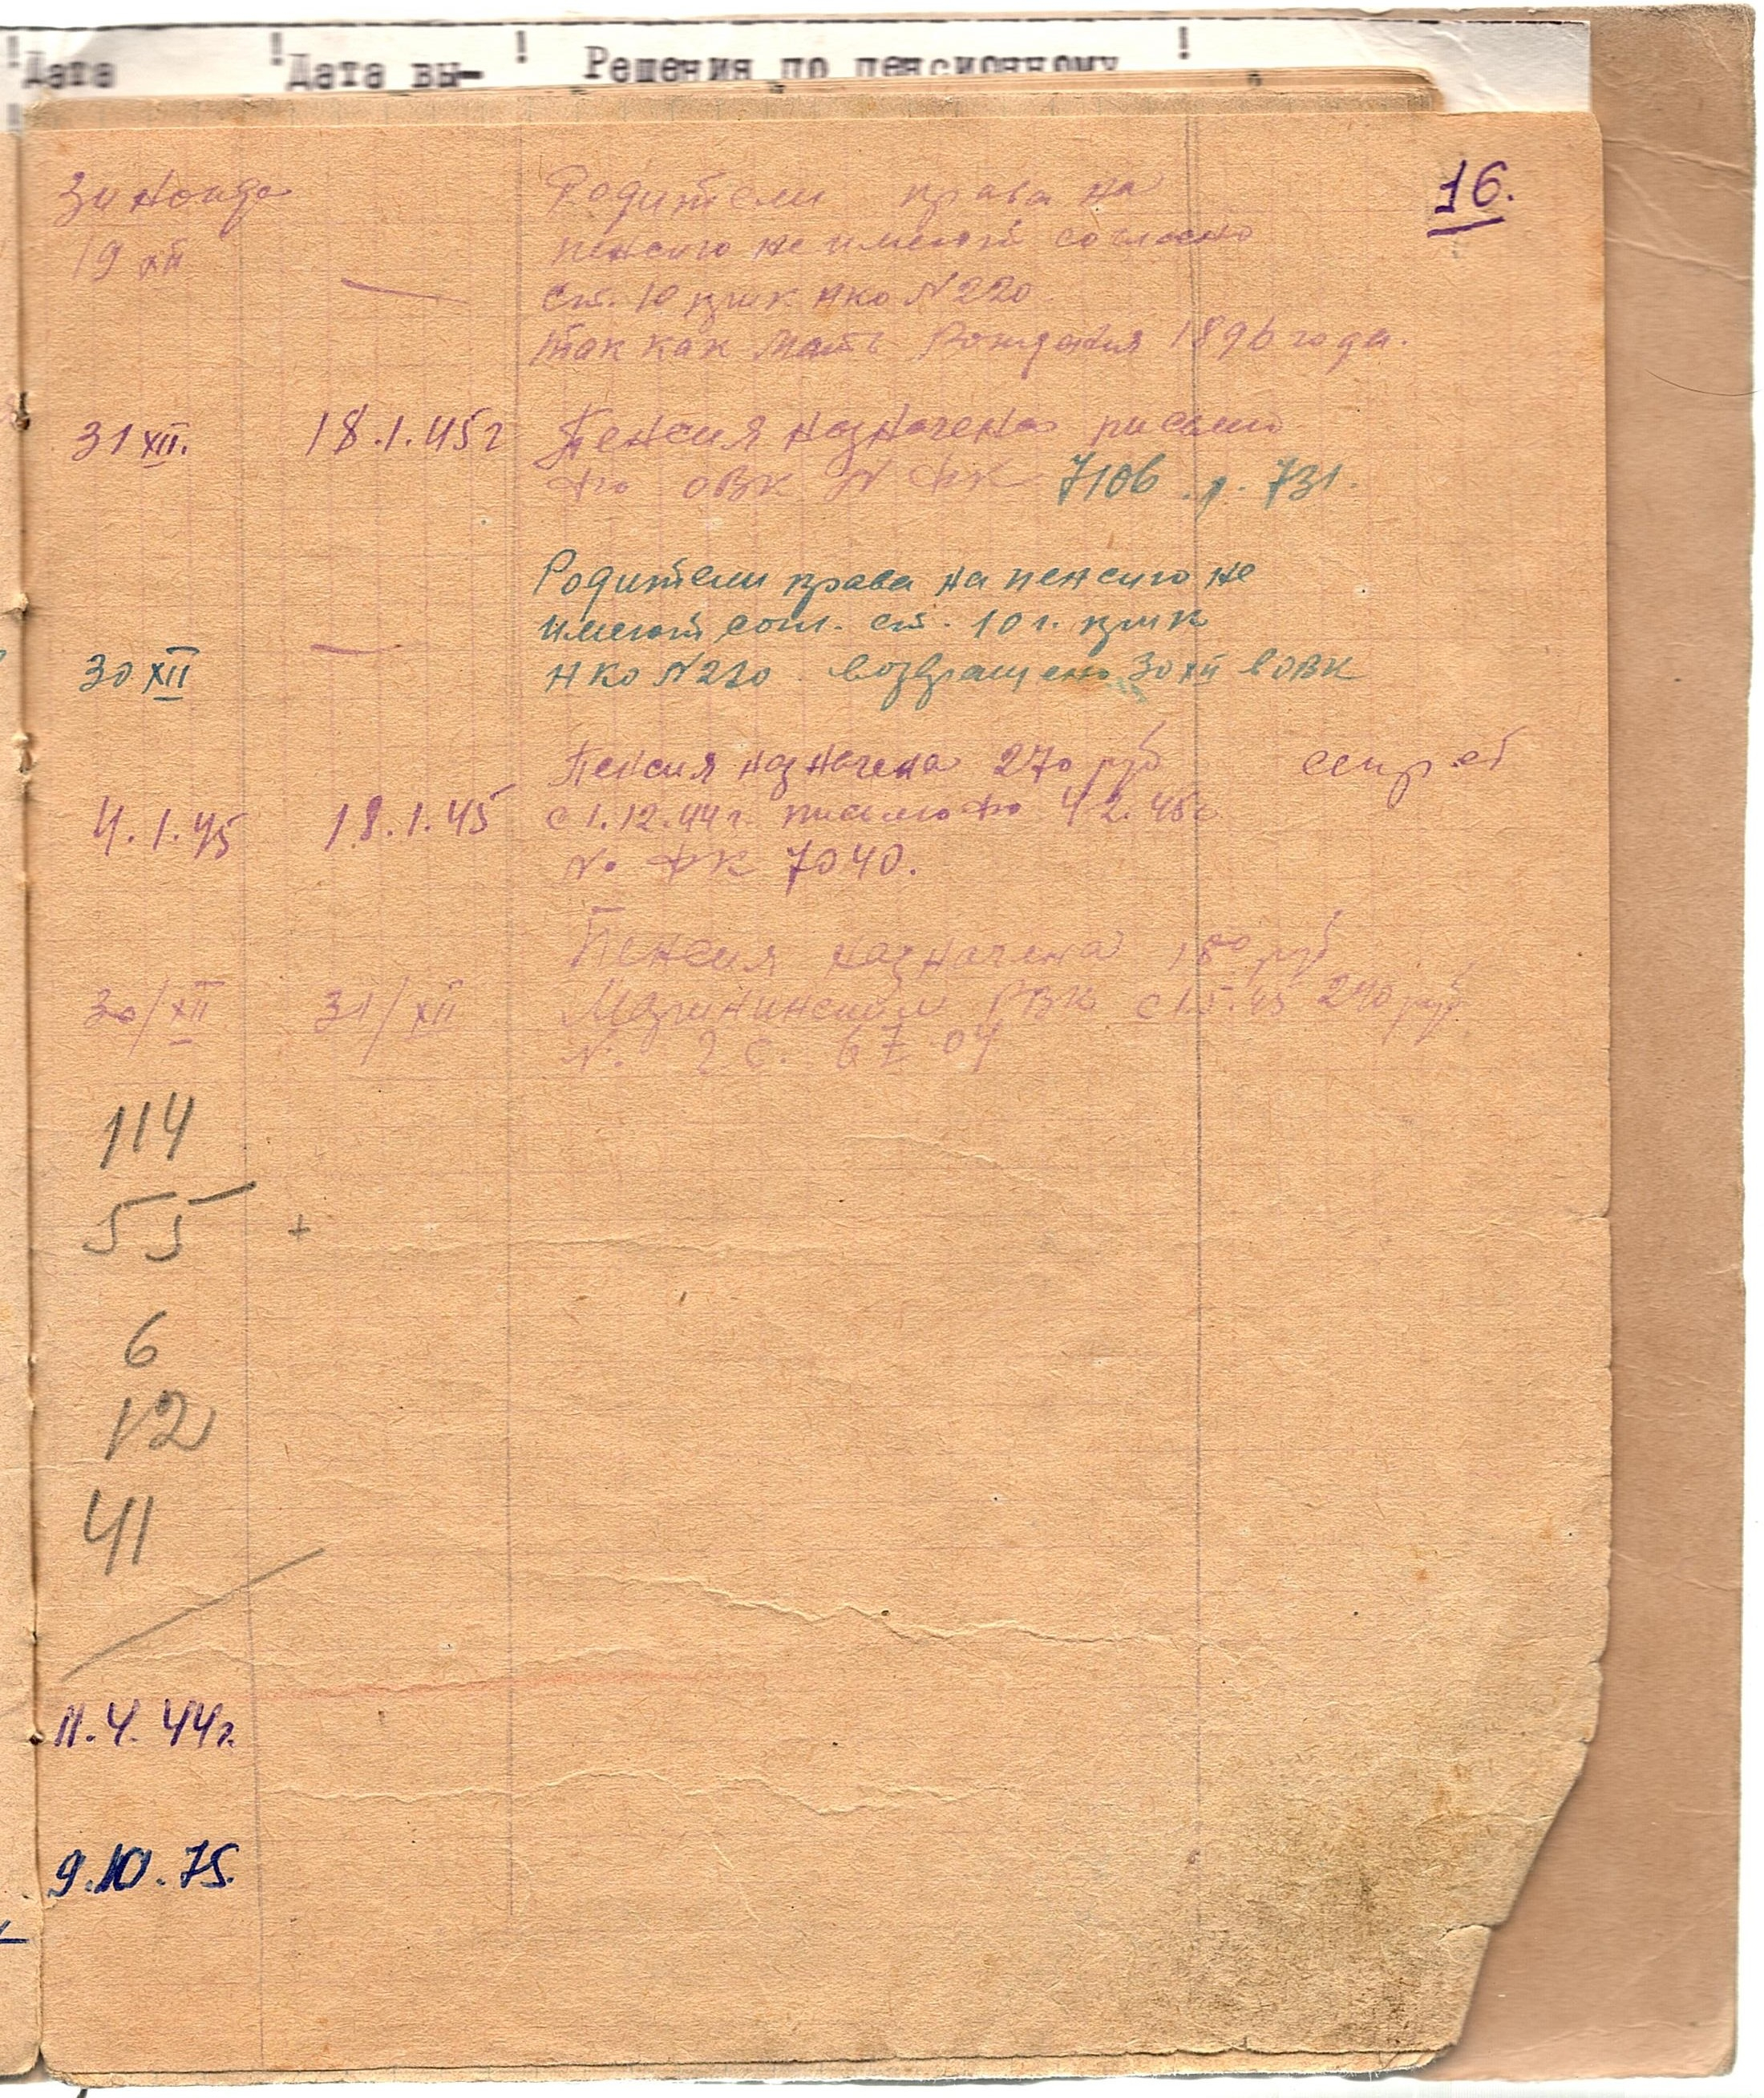 Дата
Дата вы-
Решения по пенсионному
16.
Родители права на
19 XII
пенсию не имеют согласно
ст. 10 НКО N 220
так как мать рождения 1896 года.
31 XII. 18.1.45г Пенсия назначена письмо
ОВК N ФК 7106 731.
Родители права на пенсию не
имеют согл. ст. 10
30 XII НКО N 220 возвращено 30 XII в ОВК
Пенсия назначена 270 руб
4.1.45 18.1.45 с 1.12.44 г. письмо 4 2.45г
No ФК 7040.
Пенсия назначена 180 руб
30/XII 31/XII РВК с 1.5.45 240 руб
N.
114
55 +
6
12
41
11.4.44г.
9.10.75.